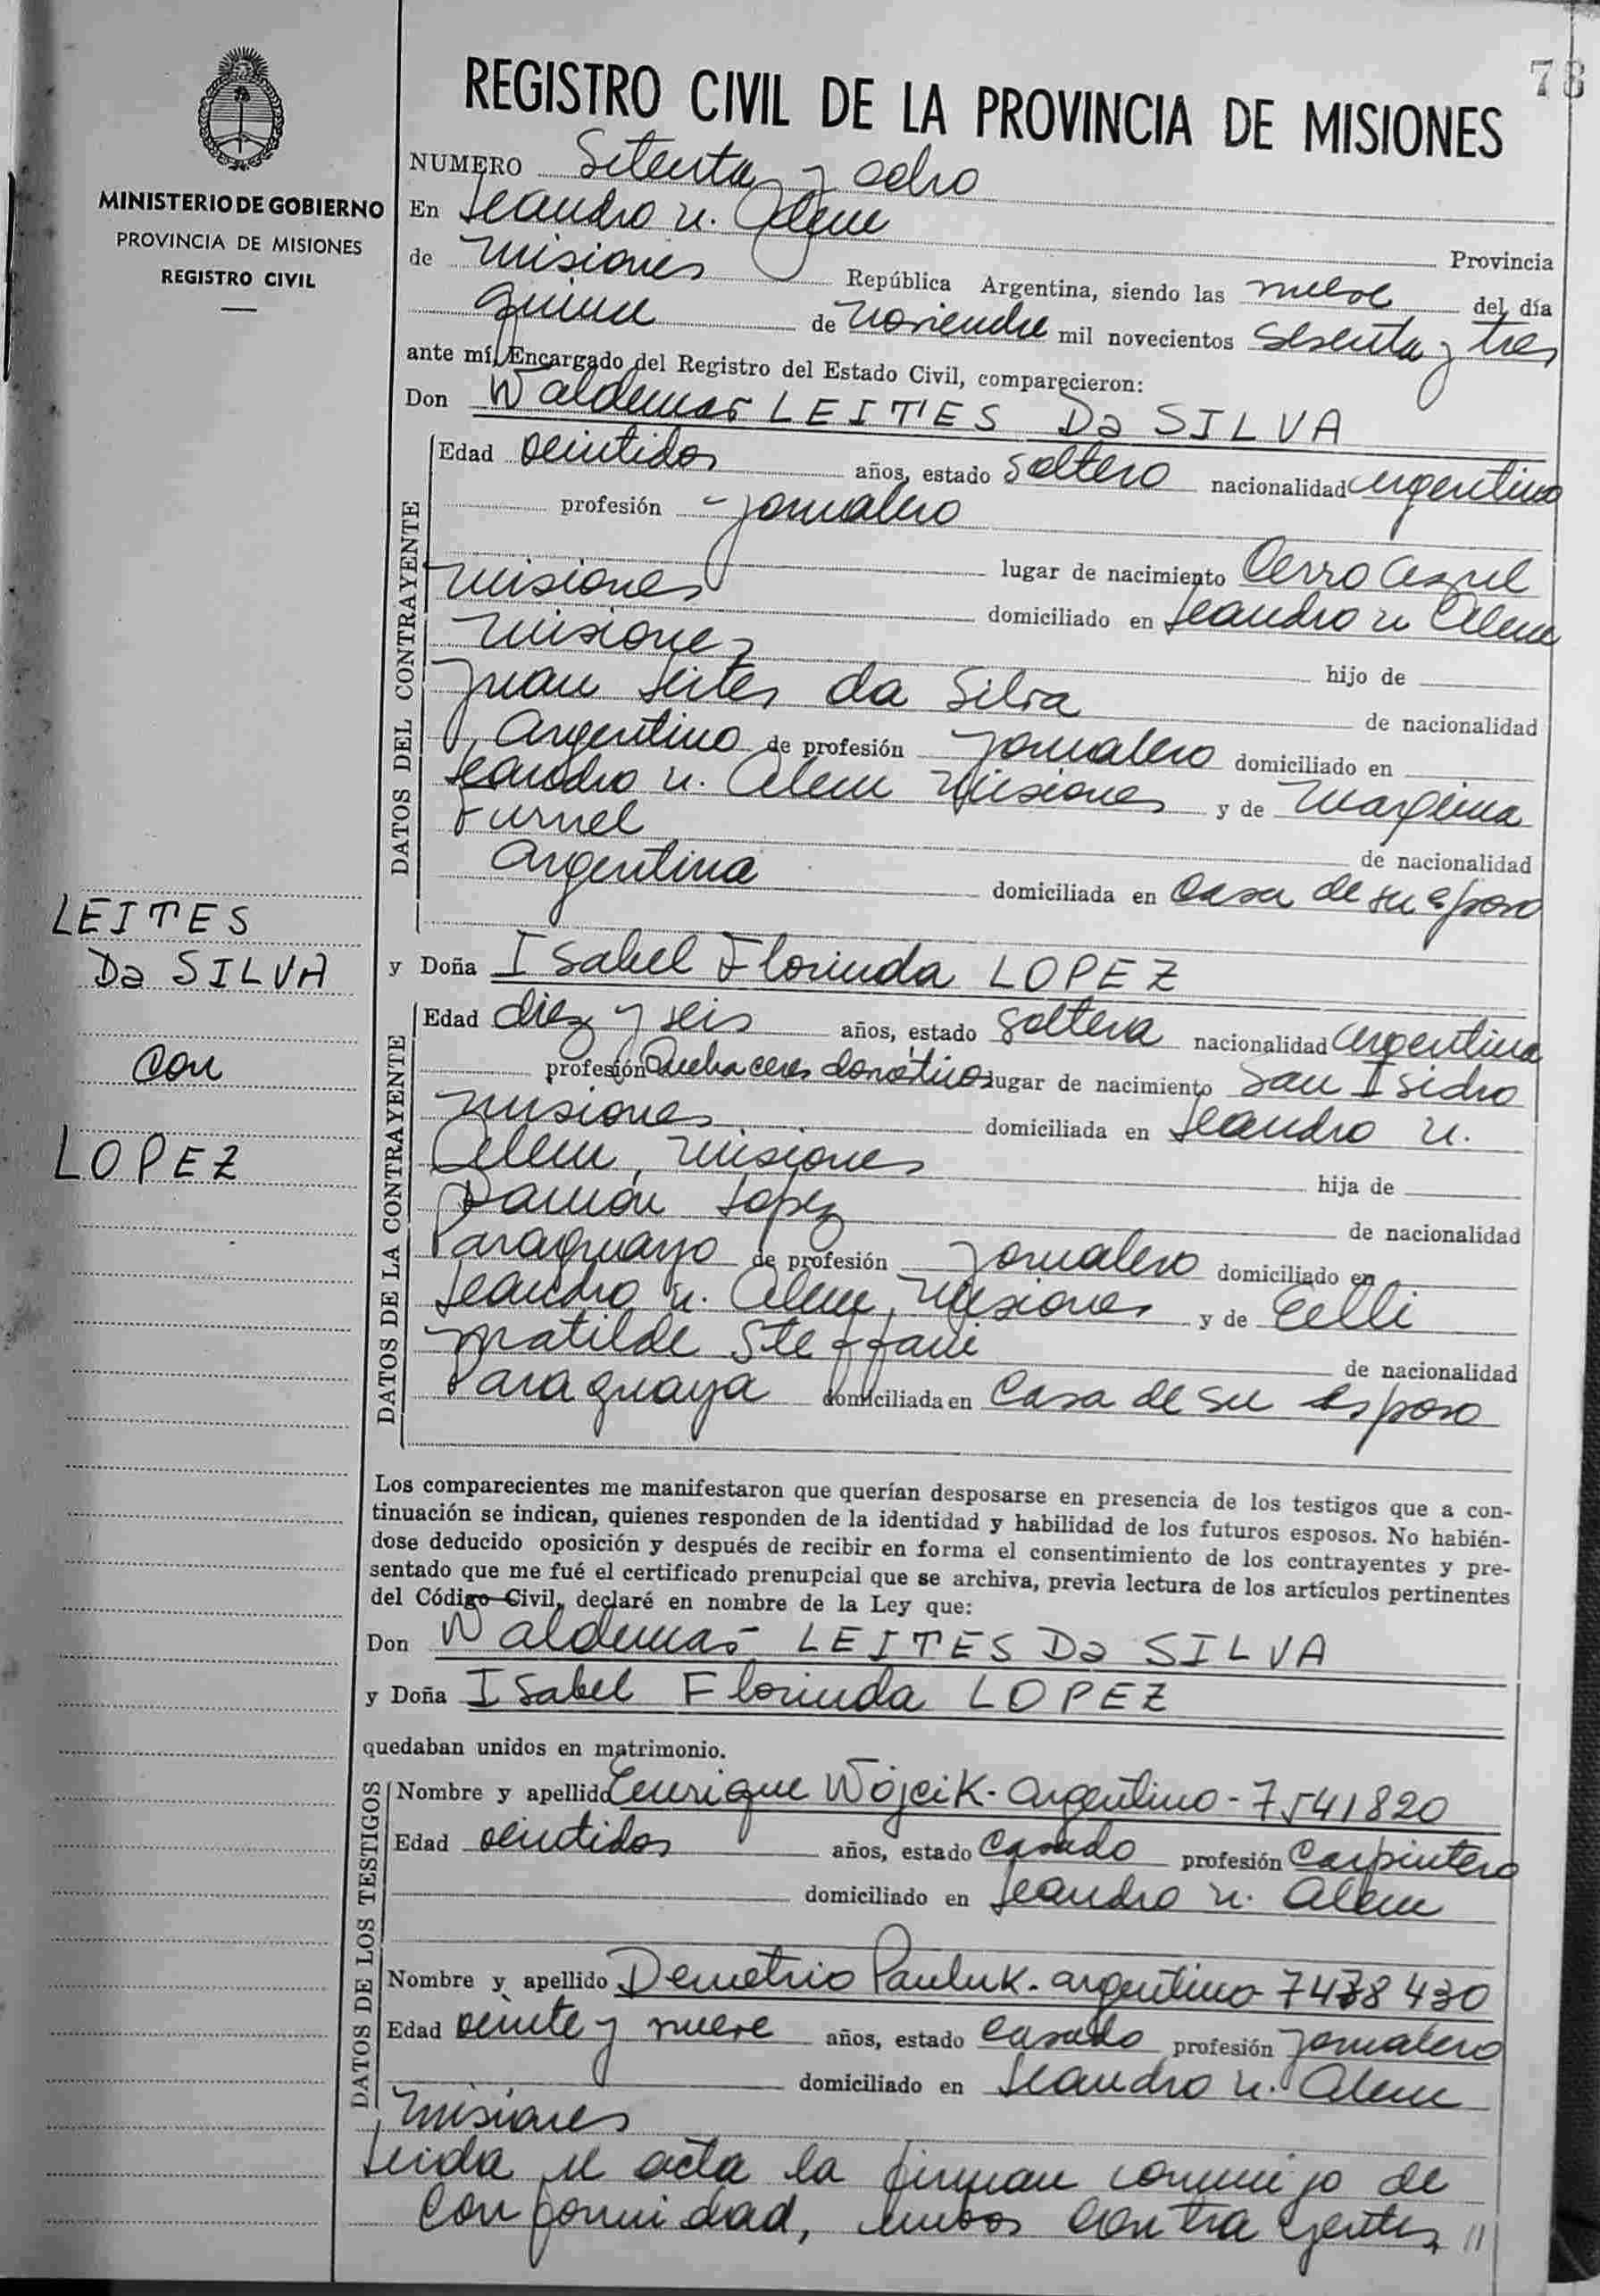 78
REGISTRO CIVIL DE LA PROVINCIA DE MISIONES
MINISTERIO DE GOBIERNO
PROVINCIA DE MISIONES
REGISTRO CIVIL
NUMERO Setenta y ocho
En Leandro N. Alem Provincia
de Misiones República Argentina, siendo las nueve del día
quince de Noviembre mil novecientos sesenta y tres
ante mí, Encargado del Registro del Estado Civil, comparecieron:
Don Waldemar LEITES Da SILVA
DATOS DEL CONTRAYENTE
Edad veintidos años, estado Soltero nacionalidad argentino
profesión jornalero
lugar de nacimiento Cerro Azul
Misiones domiciliado en Leandro N Alem
Misiones hijo de
Juan Leites da Silva de nacionalidad
Argentino de profesión Jornalero domiciliado en
Leandro N. Alem Misiones y de
de nacionalidad
Argentina domiciliada en Casa de su esposo
LEITES
Da SILVA
con
LOPEZ
y Doña Isabel Florinda LOPEZ
DATOS DE LA CONTRAYENTE
Edad diez y seis años, estado Soltera nacionalidad argentina
profesión Quehaceres domésticos lugar de nacimiento San Isidro
Misiones domiciliada en Leandro N.
Alem, Misiones hija de
Ramón Lopez de nacionalidad
Paraguayo de profesión Jornalero domiciliado en
Leandro N. Alem, Misiones y de Celli
Matilde Steffani de nacionalidad
Paraguaya domiciliada en Casa de su esposo
Los comparecientes me manifestaron que querían desposarse en presencia de los testigos que a con-
tinuación se indican, quienes responden de la identidad y habilidad de los futuros esposos. No habién-
dose deducido oposición y después de recibir en forma el consentimiento de los contrayentes y pre-
sentado que me fué el certificado prenupcial que se archiva, previa lectura de los artículos pertinentes
del Código Civil, declaré en nombre de la Ley que:
Don Waldemar LEITES Da SILVA
y Doña Isabel Florinda LOPEZ
quedaban unidos en matrimonio.
DATOS DE LOS TESTIGOS
Nombre y apellido Enrique Wojcik - Argentino - 7541820
Edad veintidos años, estado Casado profesión Carpintero
domiciliado en Leandro N. Alem
Nombre y apellido Demetrio Pauluk - argentino 7438430
Edad veinte y nueve años, estado casado profesión Jornalero
domiciliado en Leandro N. Alem
Misiones
Leida el acta la firman conmigo de
conformidad, ambos contrayentes //